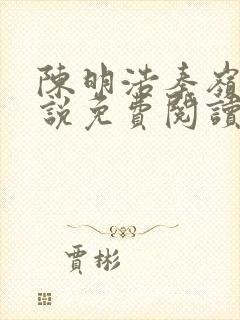 陳明浩秦嶺
說免費閱讀
賈彬